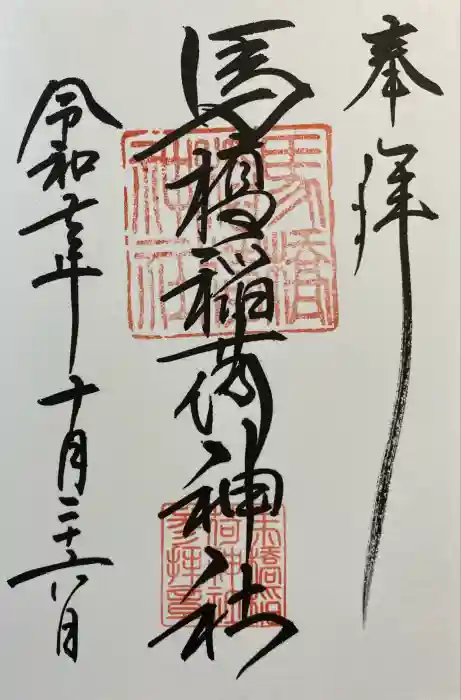 奉拝
馬橋稲荷神社
令和五年十月二十六日
馬橋
稲荷
神社
馬橋稲
荷神社
参拝